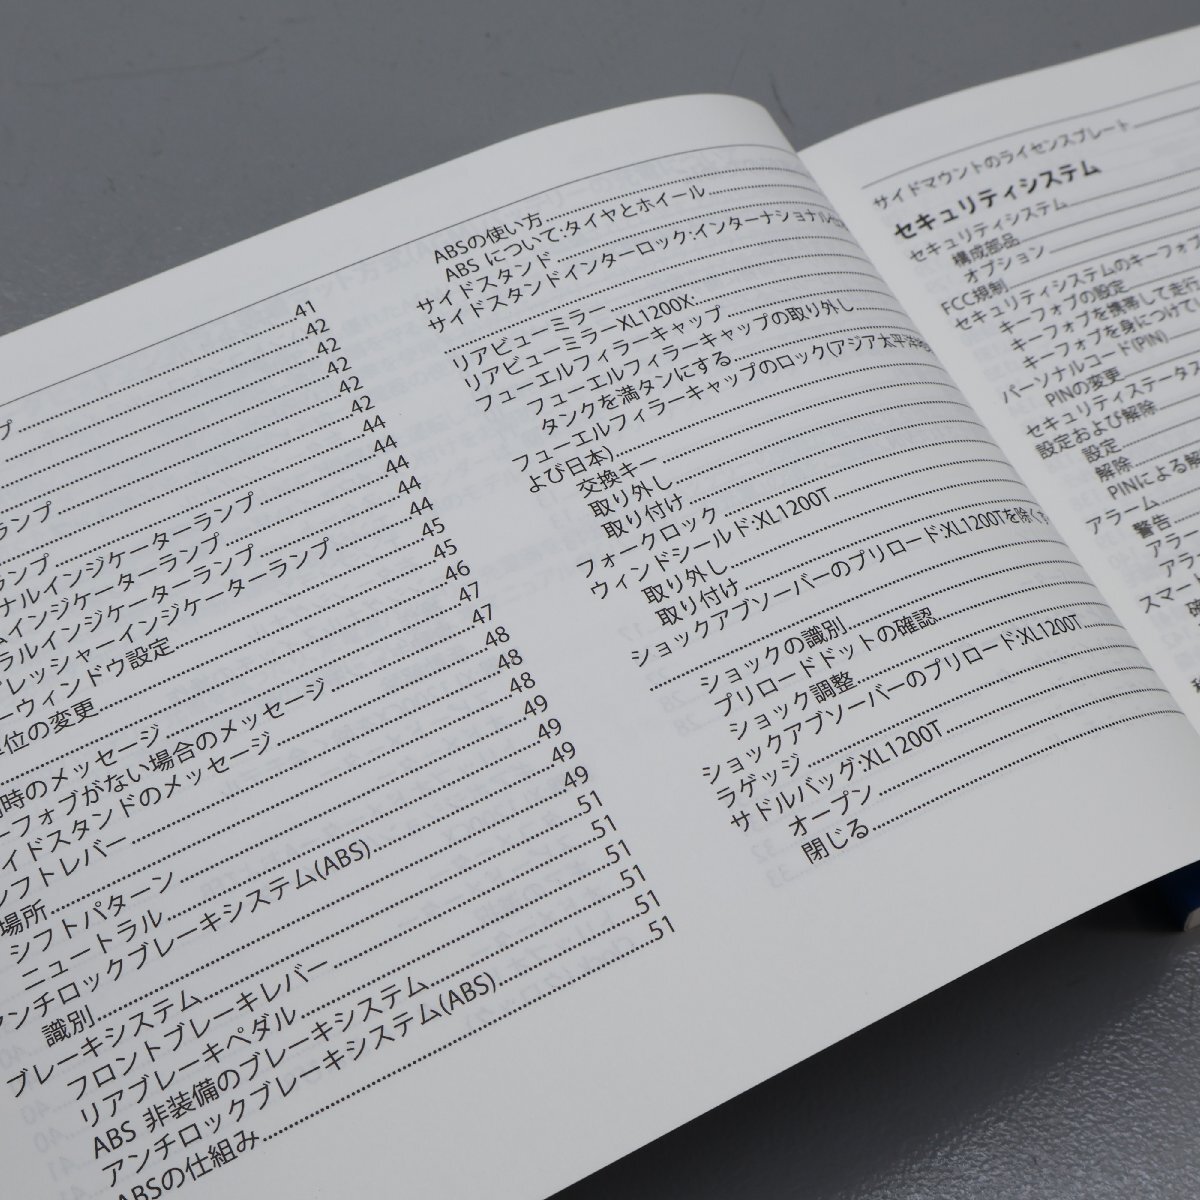 プ 41
42
42
42
42
ランプ 44
ランプ 44
ナルインジケーターランプ 44
ムインジケーターランプ 44
ラルインジケーターランプ 44
プレッシャーインジケーターランプ 45
ーウィンドウ設定 45
単位の変更 46
47
時のメッセージ 47
ーフォブがない場合のメッセージ 48
イドスタンドのメッセージ 48
シフトレバー 48
場所 49
シフトパターン 49
ニュートラル 49
アンチロックブレーキシステム(ABS) 49
識別 51
ブレーキシステム 51
フロントブレーキレバー 51
リアブレーキペダル 51
ABS 非装備のブレーキシステム 51
アンチロックブレーキシステム(ABS) 51
ABSの仕組み
ABSの使い方
ABS について:タイヤとホイール
サイドスタンド
サイドスタンドインターロック:インターナショナル
リアビューミラー
リアビューミラーXL1200X
フューエルフィラーキャップ
フューエルフィラーキャップの取り外し
タンクを満タンにする
フューエルフィラーキャップのロック(アジア太平洋
よび日本)
交換キー
取り外し
取り付け
フォークロック
ウィンドシールド:XL1200T
取り外し
取り付け
ショックアブソーバーのプリロード:XL1200Tを除くす
ショックの識別
プリロードドットの確認
ショック調整
ショックアブソーバーのプリロード:XL1200T
ラゲッジ
サドルバッグ:XL1200T
オープン
閉じる
サイドマウントのライセンスプレート
セキュリティシステム
セキュリティシステム
構成部品
オプション
FCC規制
セキュリティシステムのキーフォブ
キーフォブの設定
キーフォブを携帯して走行
キーフォブを身につけて
パーソナルコード(PIN)
PINの変更
セキュリティステータス
設定および解除
設定
解除
PINによる解
アラーム
警告
アラー
アラ
スマー